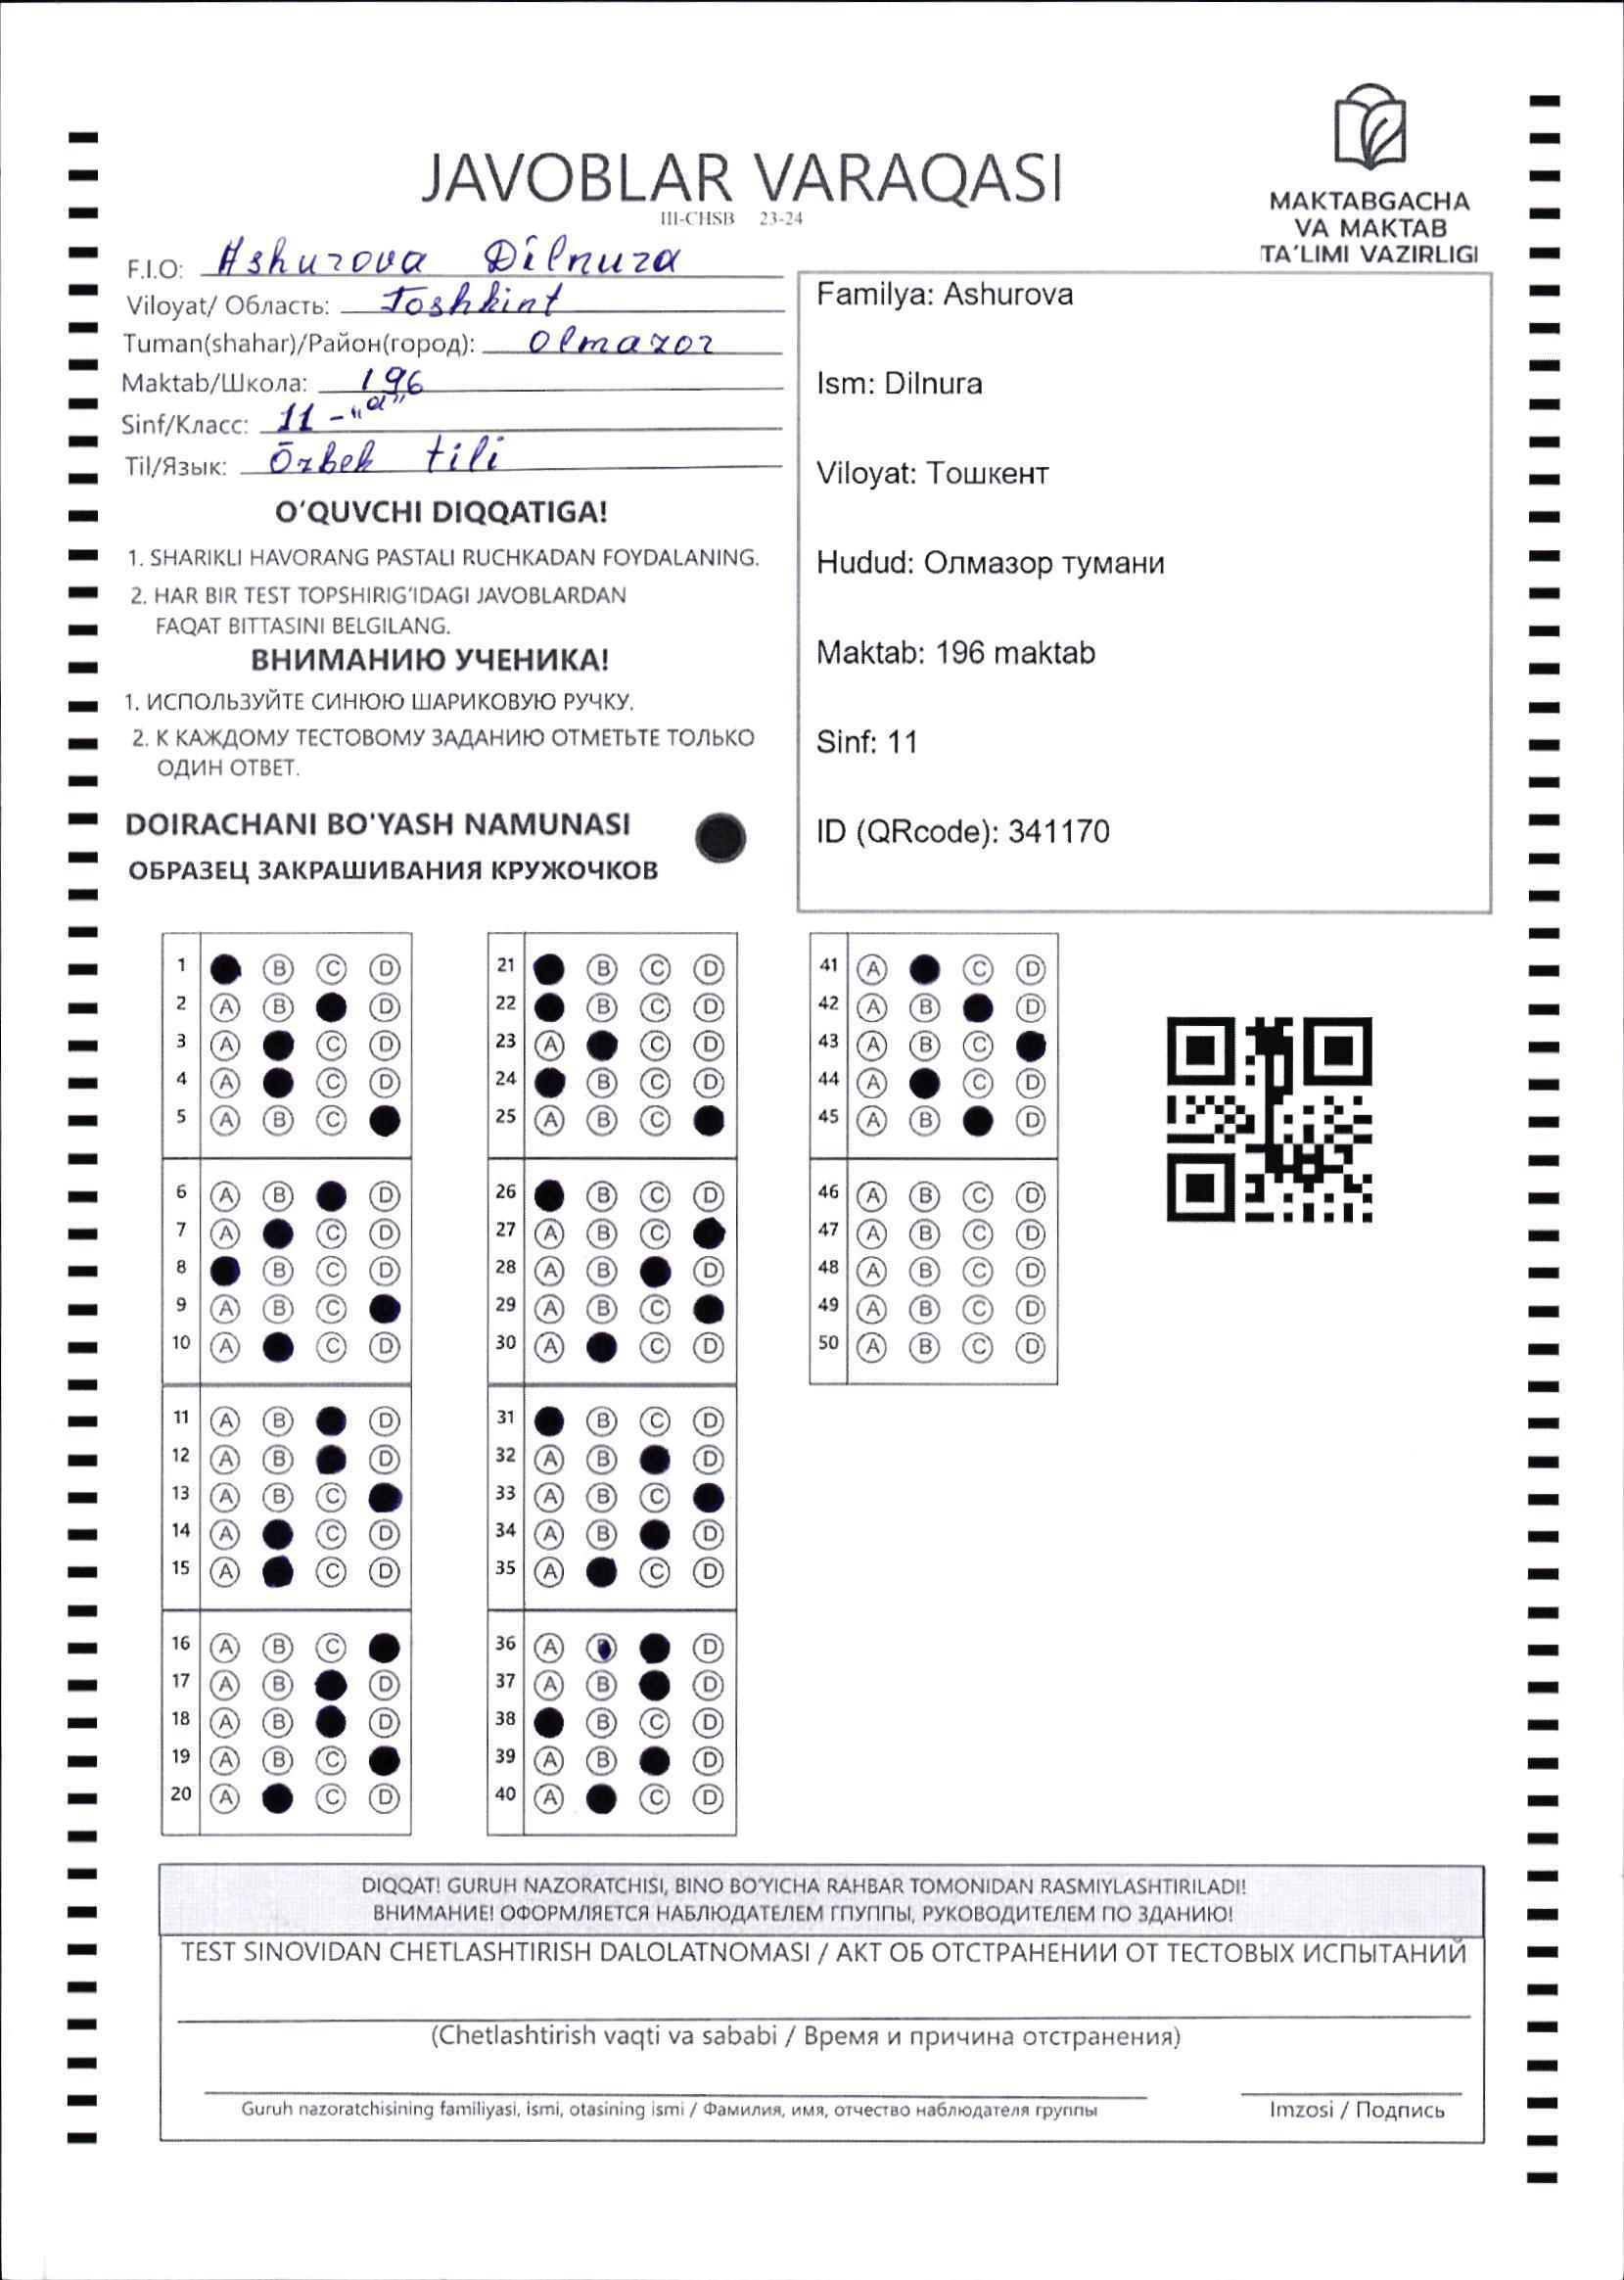 JAVOBLAR VARAQASI
III-CHSB 23-24
MAKTABGACHA
VA MAKTAB
TA'LIMI VAZIRLIGI
F.I.O: Ashurova Dilnura
Viloyat/ Область: Toshkint
Tuman(shahar)/Район(город): Olmazor
Maktab/Школа: 196
Sinf/Класс: 11-"a"
Til/Язык: Ōzbek tili
O'QUVCHI DIQQATIGA!
1. SHARIKLI HAVORANG PASTALI RUCHKADAN FOYDALANING.
2. HAR BIR TEST TOPSHIRIG'IDAGI JAVOBLARDAN
FAQAT BITTASINI BELGILANG.
ВНИМАНИЮ УЧЕНИКА!
1. ИСПОЛЬЗУЙТЕ СИНЮЮ ШАРИКОВУЮ РУЧКУ.
2. К КАЖДОМУ ТЕСТОВОМУ ЗАДАНИЮ ОТМЕТЬТЕ ТОЛЬКО
ОДИН ОТВЕТ.
DOIRACHANI BO'YASH NAMUNASI
ОБРАЗЕЦ ЗАКРАШИВАНИЯ КРУЖОЧКОВ
Familya: Ashurova
Ism: Dilnura
Viloyat: Тошкент
Hudud: Олмазор тумани
Maktab: 196 maktab
Sinf: 11
ID (QRcode): 341170
1 B C D
2 A B D
3 A C D
4 A C D
5 A B C
6 A B D
7 A C D
8 B C D
9 A B C
10 A C D
11 A B D
12 A B D
13 A B C
14 A C D
15 A C D
16 A B C
17 A B D
18 A B D
19 A B C
20 A C D
21 B C D
22 B C D
23 A C D
24 B C D
25 A B C
26 B C D
27 A B C
28 A B D
29 A B C
30 A C D
31 B C D
32 A B D
33 A B C
34 A B D
35 A C D
36 A B D
37 A B D
38 B C D
39 A B D
40 A C D
41 A C D
42 A B D
43 A B C
44 A C D
45 A B D
46 A B C D
47 A B C D
48 A B C D
49 A B C D
50 A B C D
DIQQAT! GURUH NAZORATCHISI, BINO BO'YICHA RAHBAR TOMONIDAN RASMIYLASHTIRILADI!
ВНИМАНИЕ! ОФОРМЛЯЕТСЯ НАБЛЮДАТЕЛЕМ ГПУППЫ, РУКОВОДИТЕЛЕМ ПО ЗДАНИЮ!
TEST SINOVIDAN CHETLASHTIRISH DALOLATNOMASI / АКТ ОБ ОТСТРАНЕНИИ ОТ ТЕСТОВЫХ ИСПЫТАНИЙ
(Chetlashtirish vaqti va sababi / Время и причина отстранения)
Guruh nazoratchisining familiyasi, ismi, otasining ismi / Фамилия, имя, отчество наблюдателя группы
Imzosi / Подпись